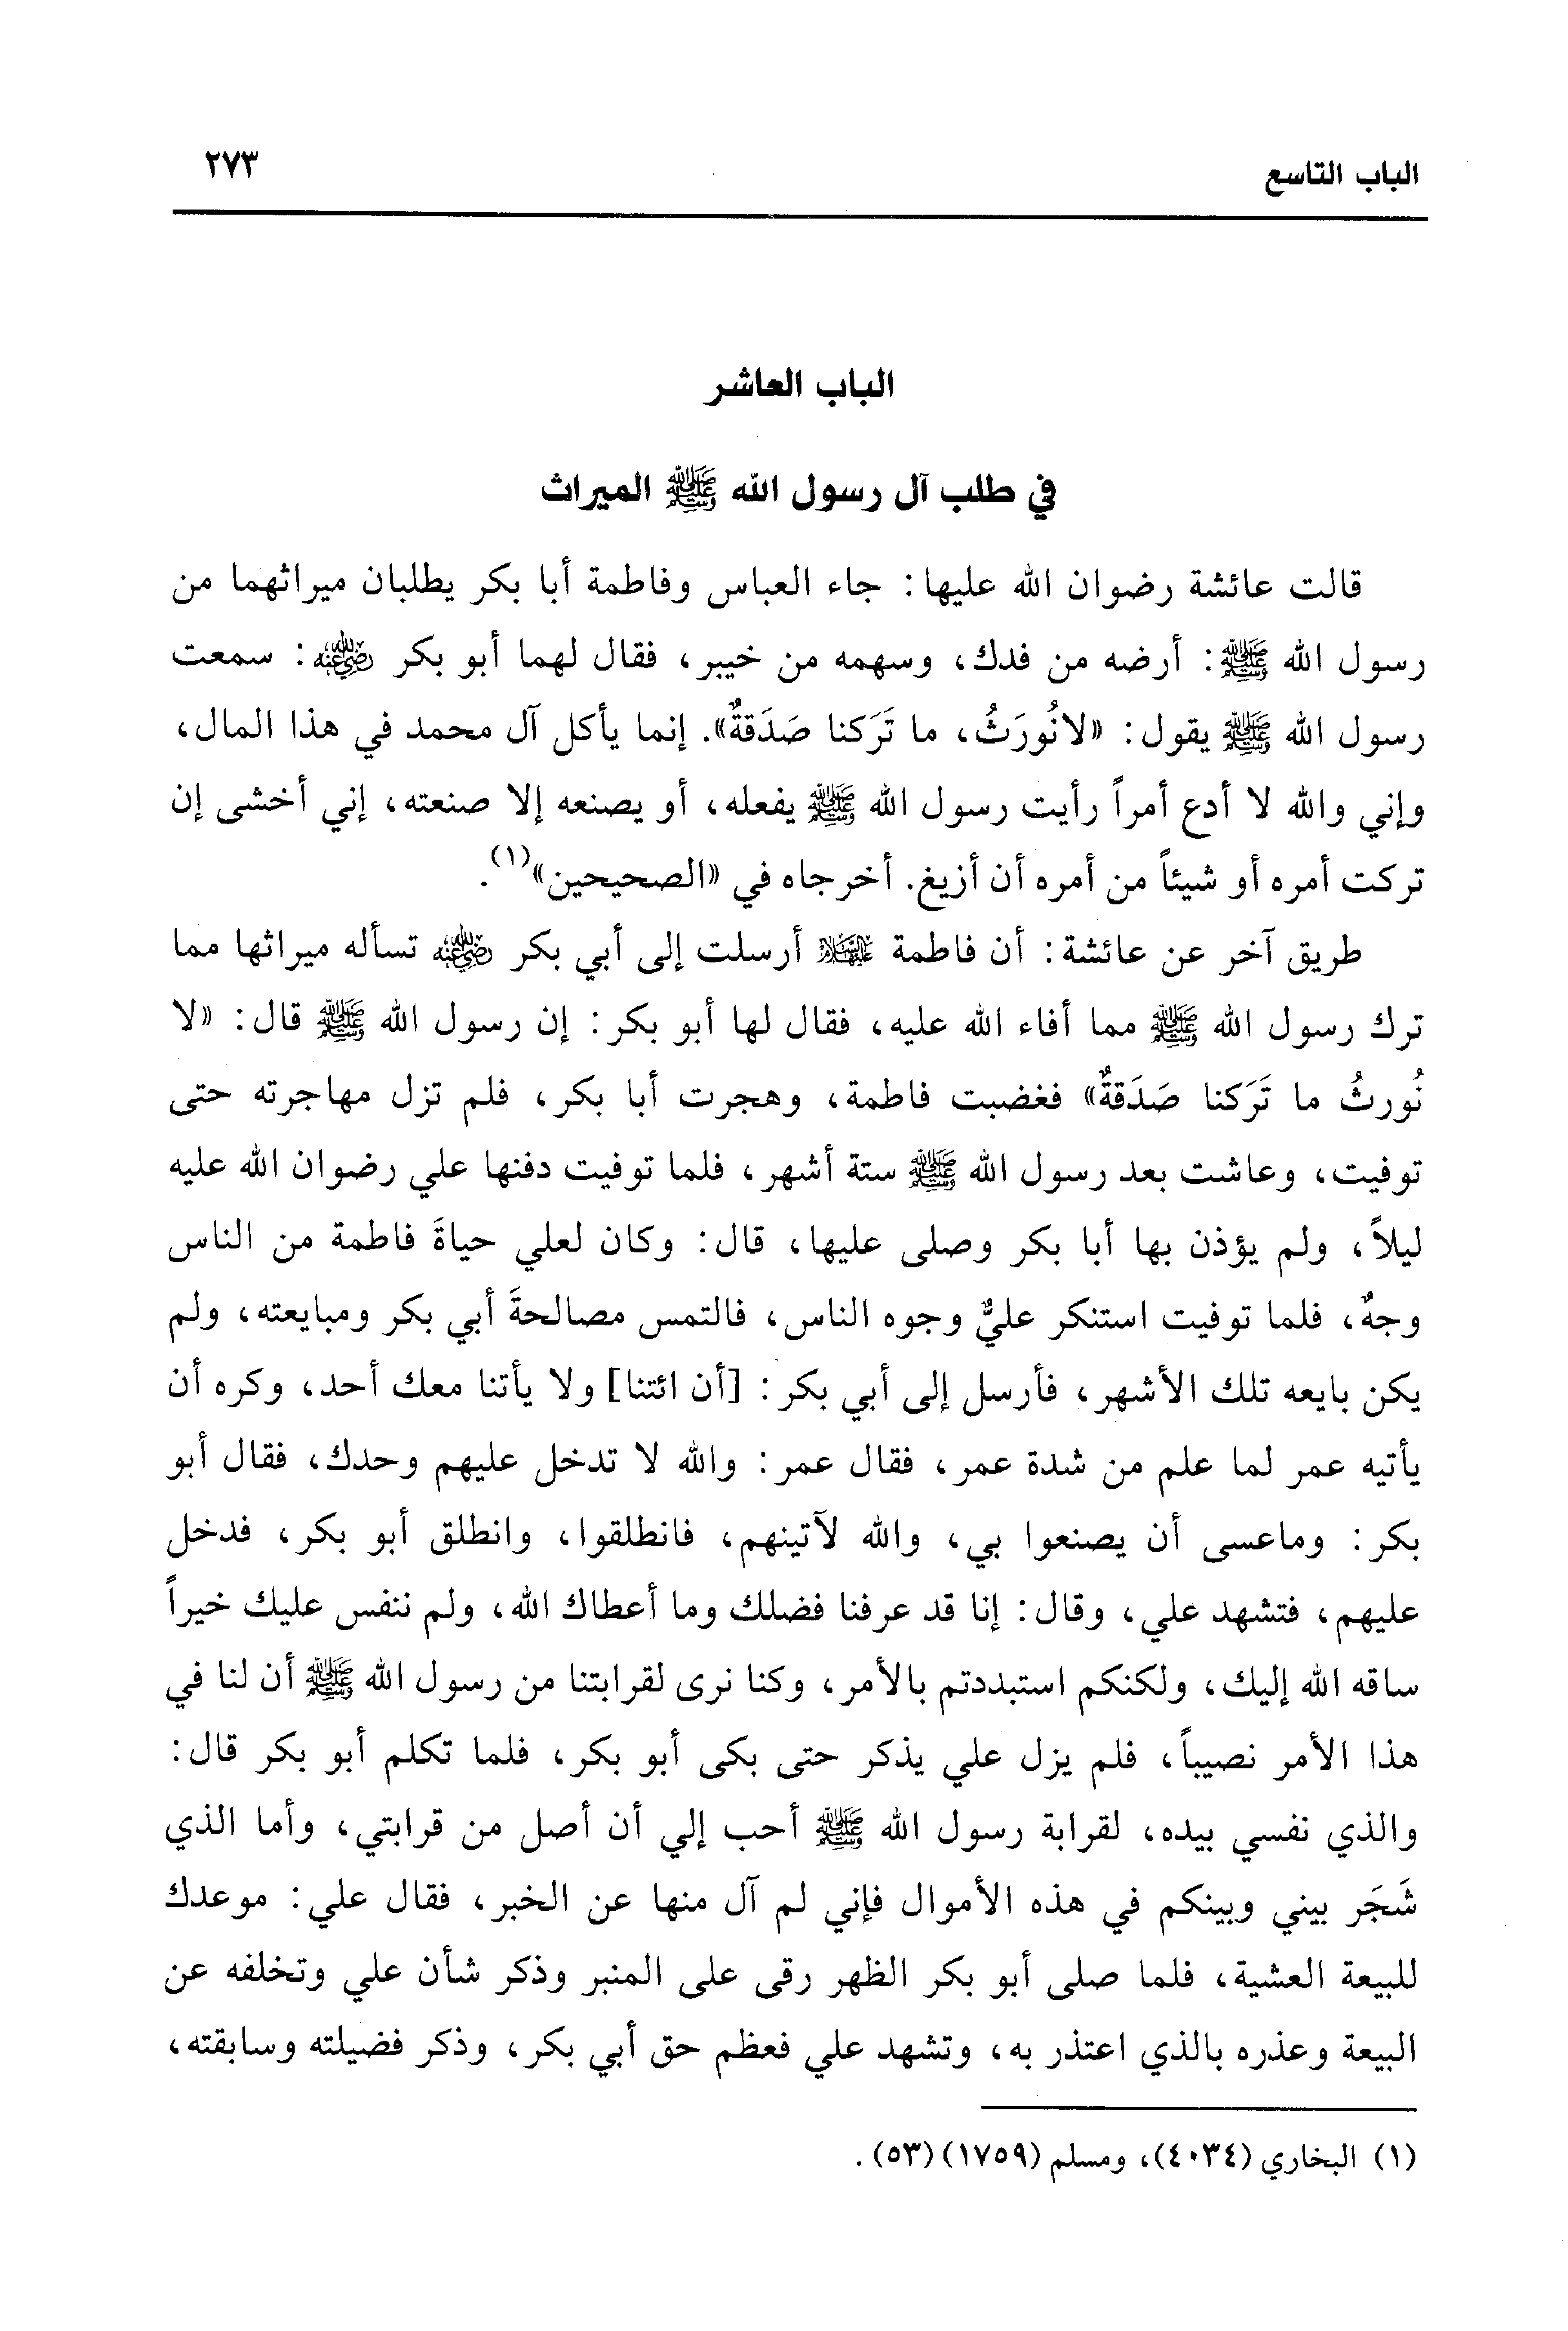 الباب التاسع
٢٧٣
الباب العاشر
في طلب آل رسول الله ﷺ الميراث
قالت عائشة رضوان الله عليها: جاء العباس وفاطمة أبا بكر يطلبان ميراثهما من
رسول الله ﷺ: أرضه من فدك، وسهمه من خيبر، فقال لهما أبو بكر رضي الله عنه: سمعت
رسول الله ﷺ يقول: «لانُورَثُ، ما تَرَكنا صَدَقةٌ». إنما يأكل آل محمد في هذا المال،
وإني والله لا أدع أمراً رأيت رسول الله ﷺ يفعله، أو يصنعه إلا صنعته، إني أخشى إن
تركت أمره أو شيئاً من أمره أن أزيغ. أخرجاه في «الصحيحين»(١).
طريق آخر عن عائشة: أن فاطمة عليها السلام أرسلت إلى أبي بكر رضي الله عنه تسأله ميراثها مما
ترك رسول الله ﷺ مما أفاء الله عليه، فقال لها أبو بكر: إن رسول الله ﷺ قال: «لا
نُورثُ ما تَرَكنا صَدَقةٌ» فغضبت فاطمة، وهجرت أبا بكر، فلم تزل مهاجرته حتى
توفيت، وعاشت بعد رسول الله ﷺ ستة أشهر، فلما توفيت دفنها علي رضوان الله عليه
ليلاً، ولم يؤذن بها أبا بكر وصلى عليها، قال: وكان لعلي حياةَ فاطمة من الناس
وجهٌ، فلما توفيت استنكر عليٌّ وجوه الناس، فالتمس مصالحةَ أبي بكر ومبايعته، ولم
يكن بايعه تلك الأشهر، فأرسل إلى أبي بكر: [أن ائتنا] ولا يأتنا معك أحد، وكره أن
يأتيه عمر لما علم من شدة عمر، فقال عمر: والله لا تدخل عليهم وحدك، فقال أبو
بكر: وماعسى أن يصنعوا بي، والله لآتينهم، فانطلقوا، وانطلق أبو بكر، فدخل
عليهم، فتشهد علي، وقال: إنا قد عرفنا فضلك وما أعطاك الله، ولم ننفس عليك خيراً
ساقه الله إليك، ولكنكم استبددتم بالأمر، وكنا نرى لقرابتنا من رسول الله ﷺ أن لنا في
هذا الأمر نصيباً، فلم يزل علي يذكر حتى بكى أبو بكر، فلما تكلم أبو بكر قال:
والذي نفسي بيده، لقرابة رسول الله ﷺ أحب إلي أن أصل من قرابتي، وأما الذي
شَجَر بيني وبينكم في هذه الأموال فإني لم آل منها عن الخبر، فقال علي: موعدك
للبيعة العشية، فلما صلى أبو بكر الظهر رقى على المنبر وذكر شأن علي وتخلفه عن
البيعة وعذره بالذي اعتذر به، وتشهد علي فعظم حق أبي بكر، وذكر فضيلته وسابقته،
(١) البخاري (٤٠٣٤)، ومسلم (١٧٥٩) (٥٣).